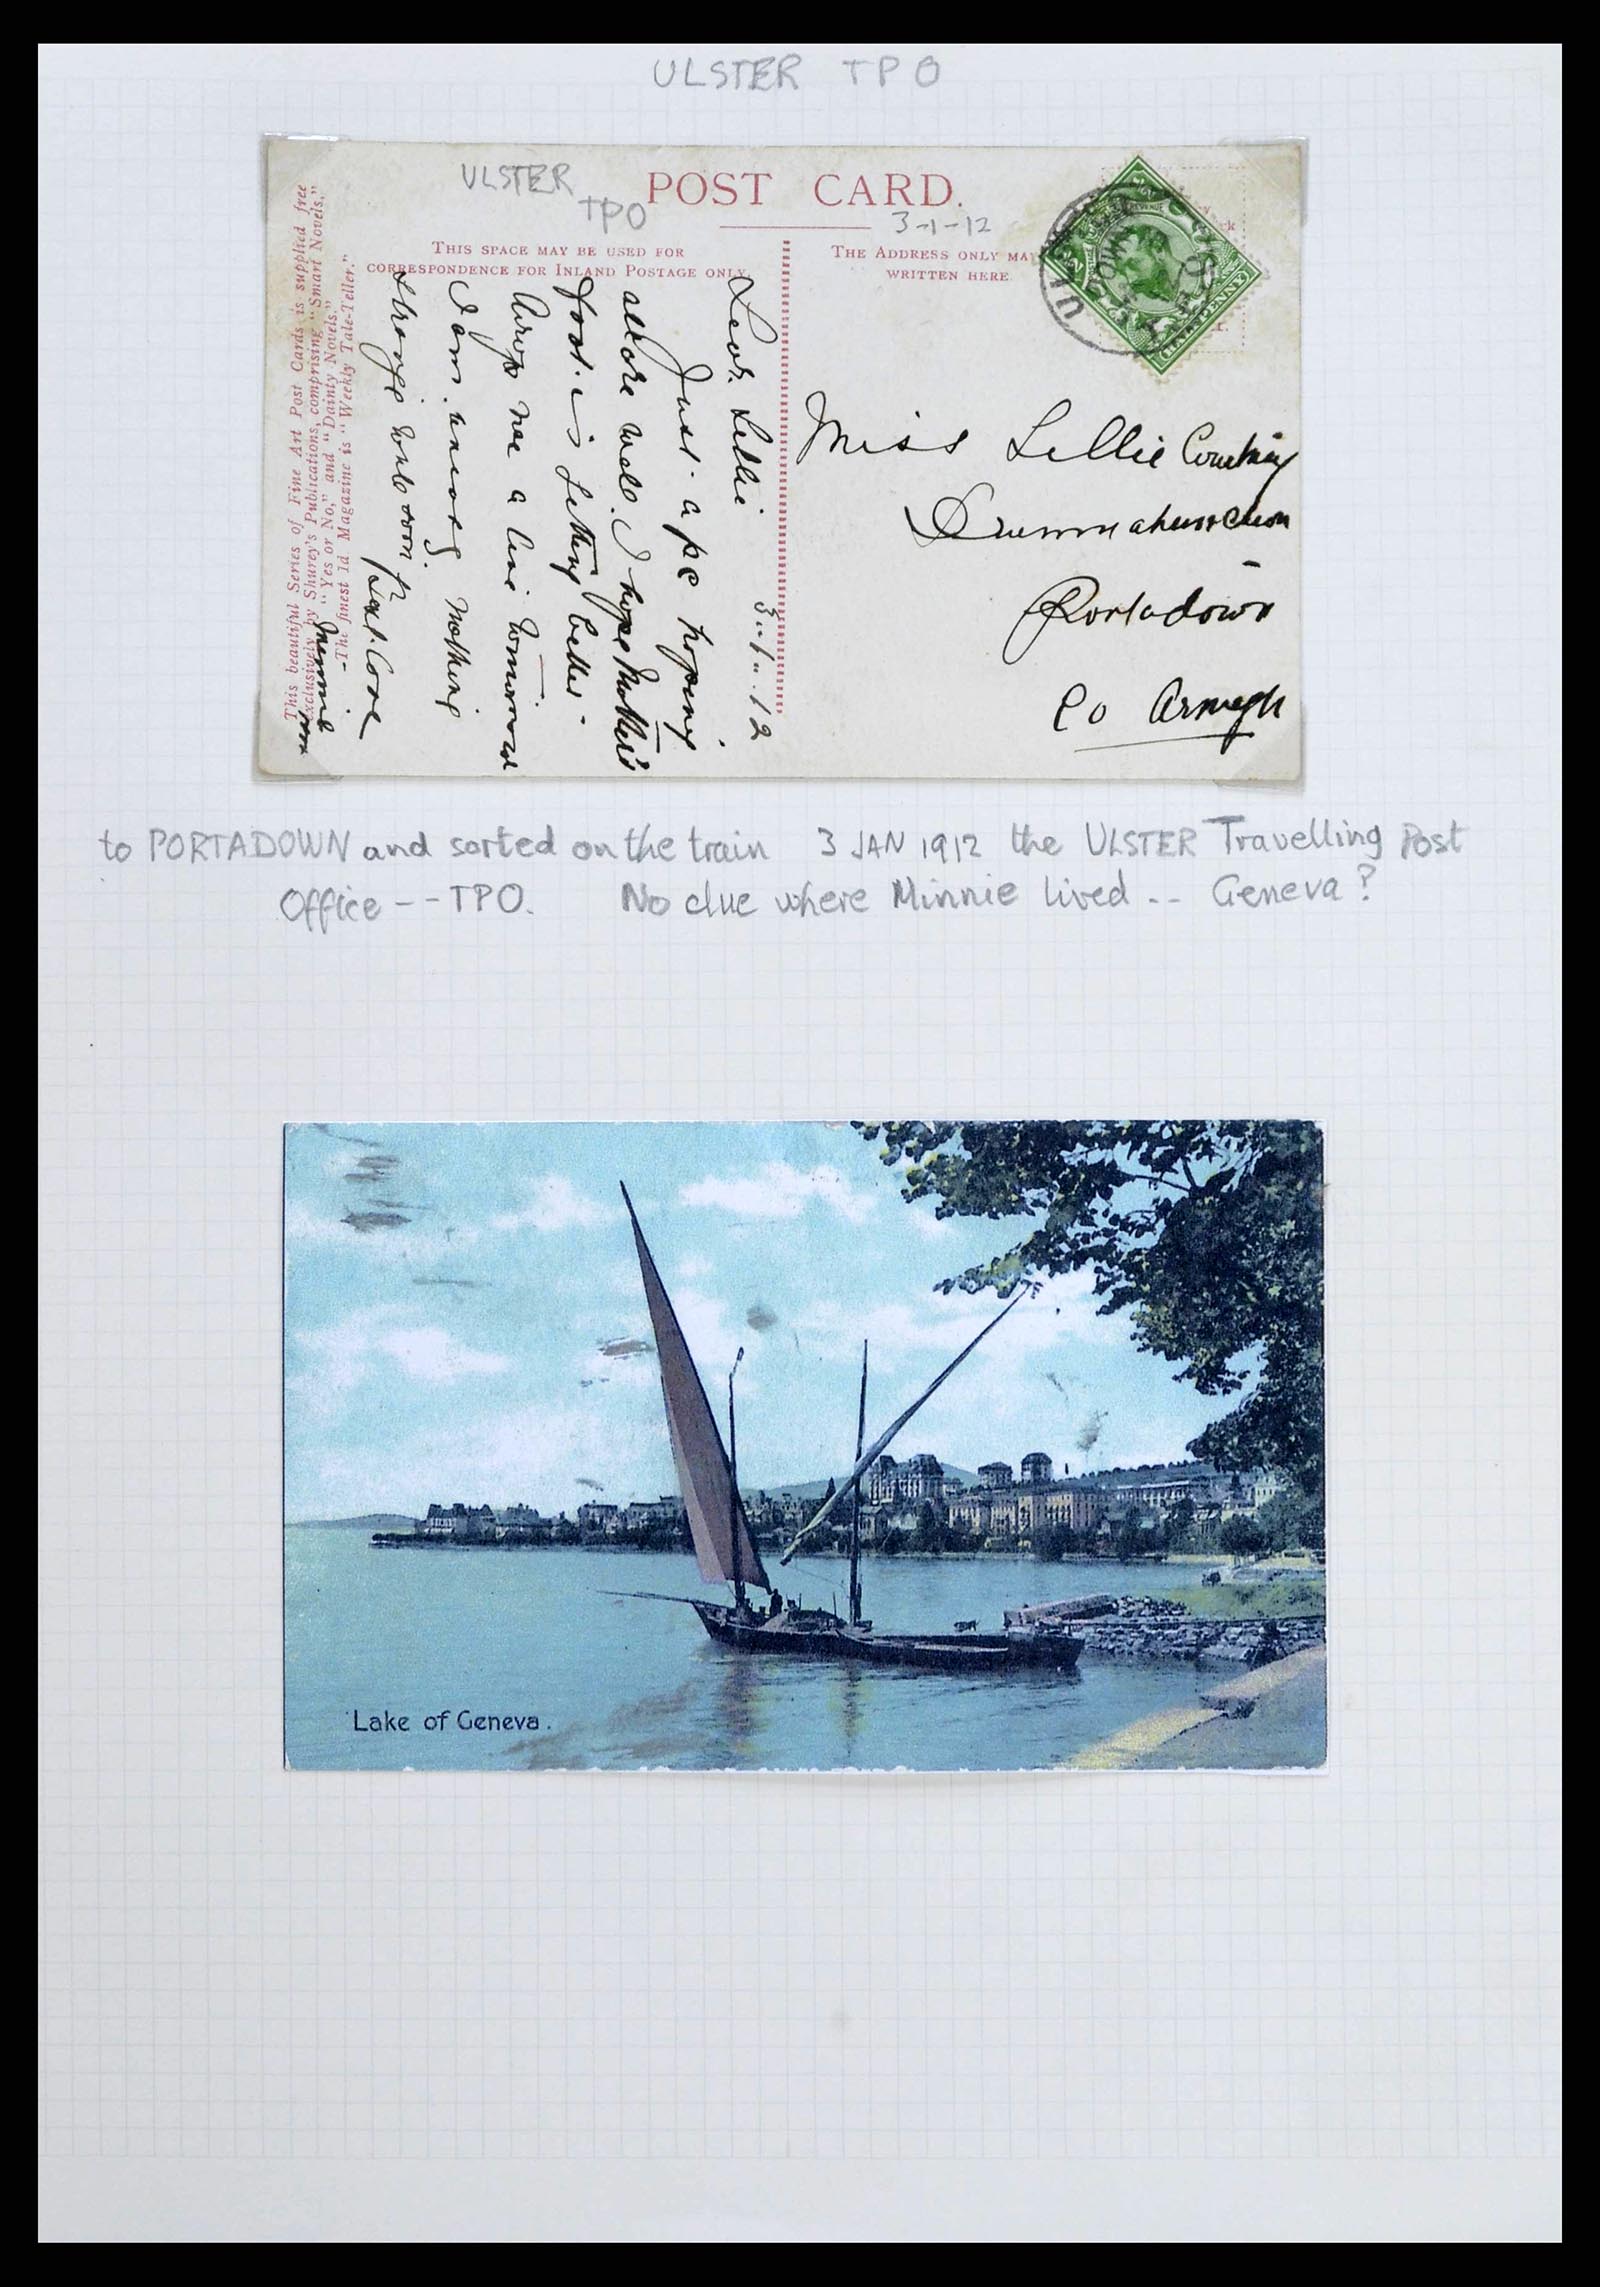 ULSTER TPO
ULSTER
TPO
POST CARD.
3-1-12
THIS SPACE MAY BE USED FOR
CORRESPONDENCE FOR INLAND POSTAGE ONLY.
THE ADDRESS ONLY MAY
WRITTEN HERE
HALFPENNY
This beautiful Series of Fine Art Post Cards is supplied free
exclusively by Shurey's Publications, comprising "Smart Novels,"
"Yes or No," and "Dainty Novels."
-The finest 1d Magazine is "Weekly Tale-Teller."
3 / 1 / 12
Dear Lillie
Just a pc hoping
all are well. I hope Mother's
foot is getting better
drop me a line tomorrow
I am
nothing
strange
soon
Minnie
Miss Lillie
Portadown
Co Armagh
to PORTADOWN and sorted on the train 3 JAN 1912 the ULSTER Travelling Post
Office -- TPO. No clue where Minnie lived -- Geneva?
Lake of Geneva.